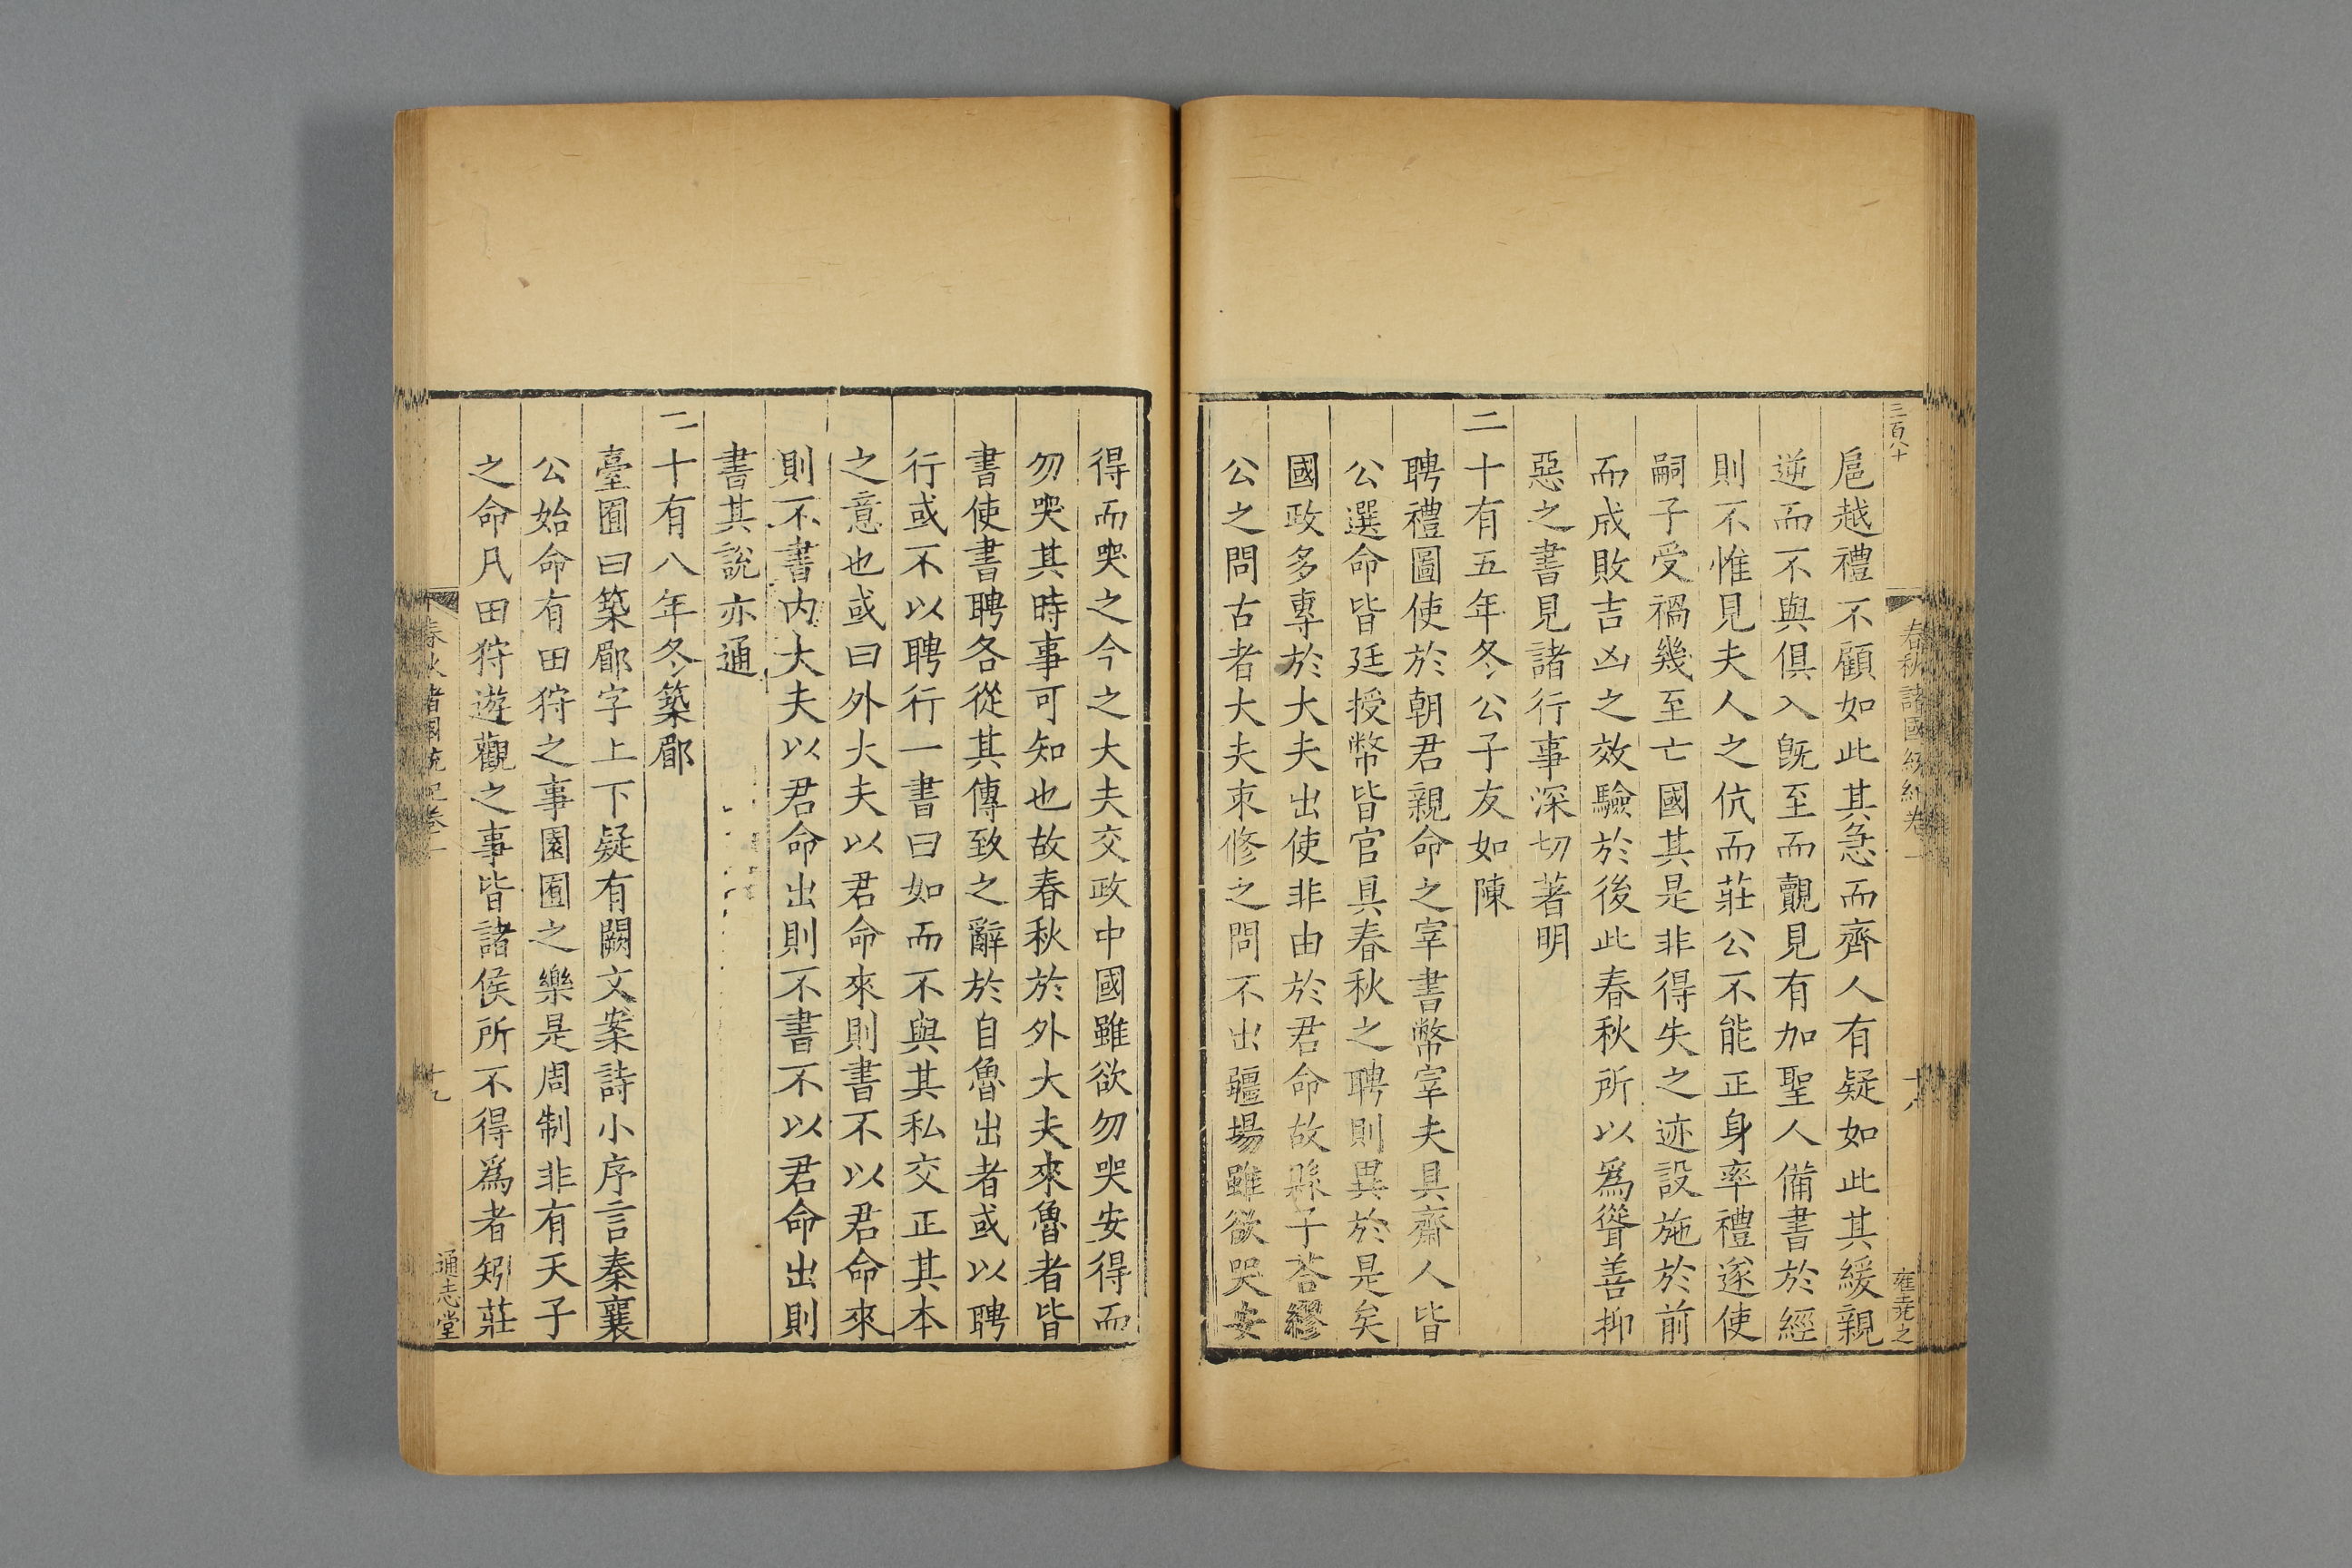 三百八十
春秋諸國統紀卷一
十八
雍尭之
扈越禮不顧如此其急而齊人有疑如此其緩親
逆而不與俱入旣至而覿見有加聖人備書於經
則不惟見夫人之伉而莊公不能正身率禮遂使
嗣子受禍幾至亡國其是非得失之迹設施於前
而成敗吉凶之效驗於後此春秋所以爲聳善抑
惡之書見諸行事深切著明
二十有五年冬公子友如陳
聘禮圖使於朝君親命之宰書幣宰夫具齋人皆
公選命皆廷授幣皆官具春秋之聘則異於是矣
國政多專於大夫出使非由於君命故縣子荅繆
公之問古者大夫朿修之問不出疆場雖欲哭安
得而哭之今之大夫交政中國雖欲勿哭安得而
勿哭其時事可知也故春秋於外大夫來魯者皆
書使書聘各從其傳致之辭於自魯出者或以聘
行或不以聘行一書曰如而不與其私交正其本
之意也或曰外大夫以君命來則書不以君命來
則不書内大夫以君命出則不書不以君命出則
書其說亦通
二十有八年冬築郿
臺囿曰築郿字上下疑有闕文案詩小序言秦襄
公始命有田狩之事園囿之樂是周制非有天子
之命凡田狩遊觀之事皆諸侯所不得爲者矧莊
春秋諸國統紀卷一
十九
通志堂